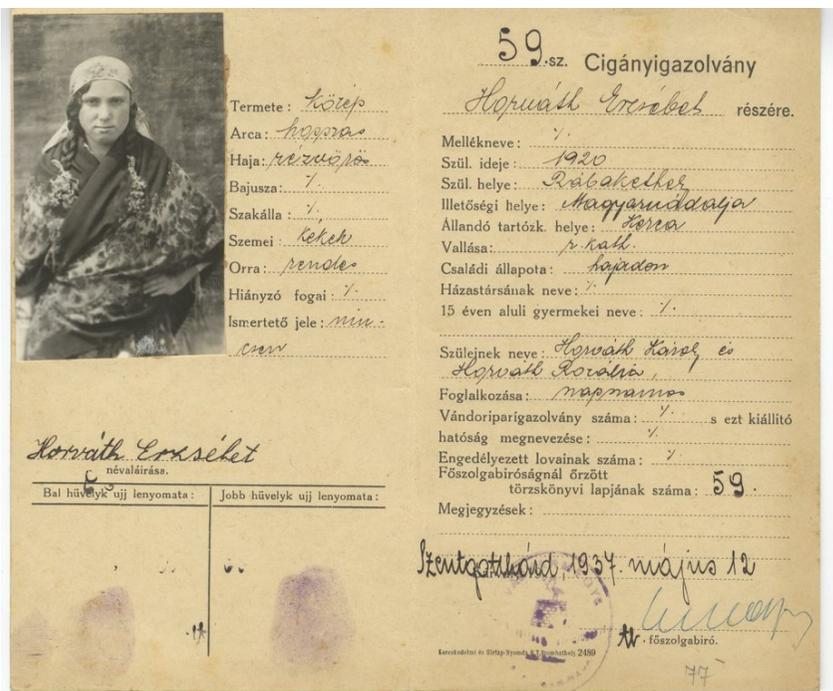 59.sz. Cigányigazolvány
Horváth Erzsébet részére.
Termete: közép
Arca: hosszas
Haja: rézvörös
Bajusza: ٪
Szakálla: ٪
Szemei: kékek
Orra: rendes
Hiányzó fogai: ٪
Ismertető jele: nin-
csen
Horváth Erzsébet
névaláirása.
Bal hüvelyk ujj lenyomata: Jobb hüvelyk ujj lenyomata:
Mellékneve: ٪
Szül. ideje: 1920
Szül. helye: Rábakethely
Illetőségi helye: Magyarnádalja
Állandó tartózk. helye:
Vallása: r. kath.
Családi állapota: hajadon
Házastársának neve: ٪
15 éven aluli gyermekei neve: ٪
Szülejnek neve: Horváth Károly és
Horváth Rozália,
Foglalkozása: napszamos
Vándoriparigazolvány száma: ٪ s ezt kiállitó
hatóság megnevezése: ٪
Engedélyezett lovainak száma: ٪
Főszolgabiróságnál őrzött
törzskönyvi lapjának száma: 59.
Megjegyzések:
Szentgotthárd, 1937. május 12
főszolgabiró.
Kereskedelmi és Hirlap-Nyomda R.T. Szombathely 2489
77